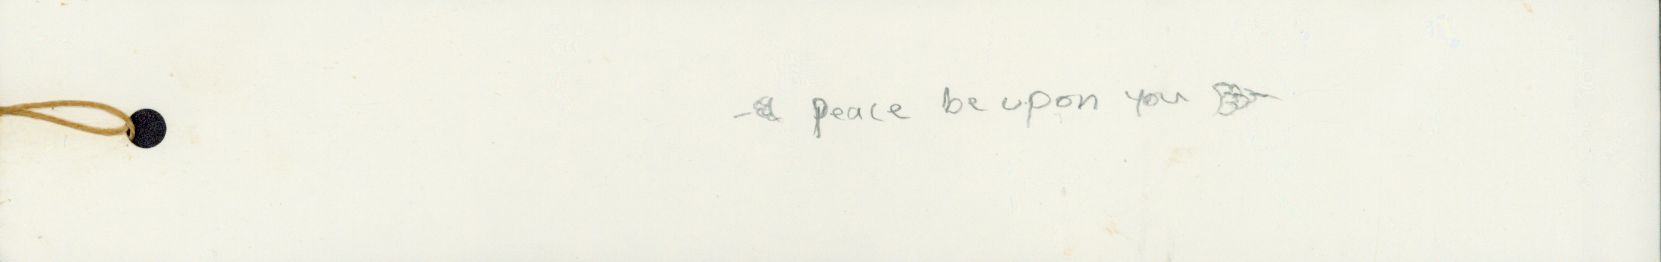 peace be upon you